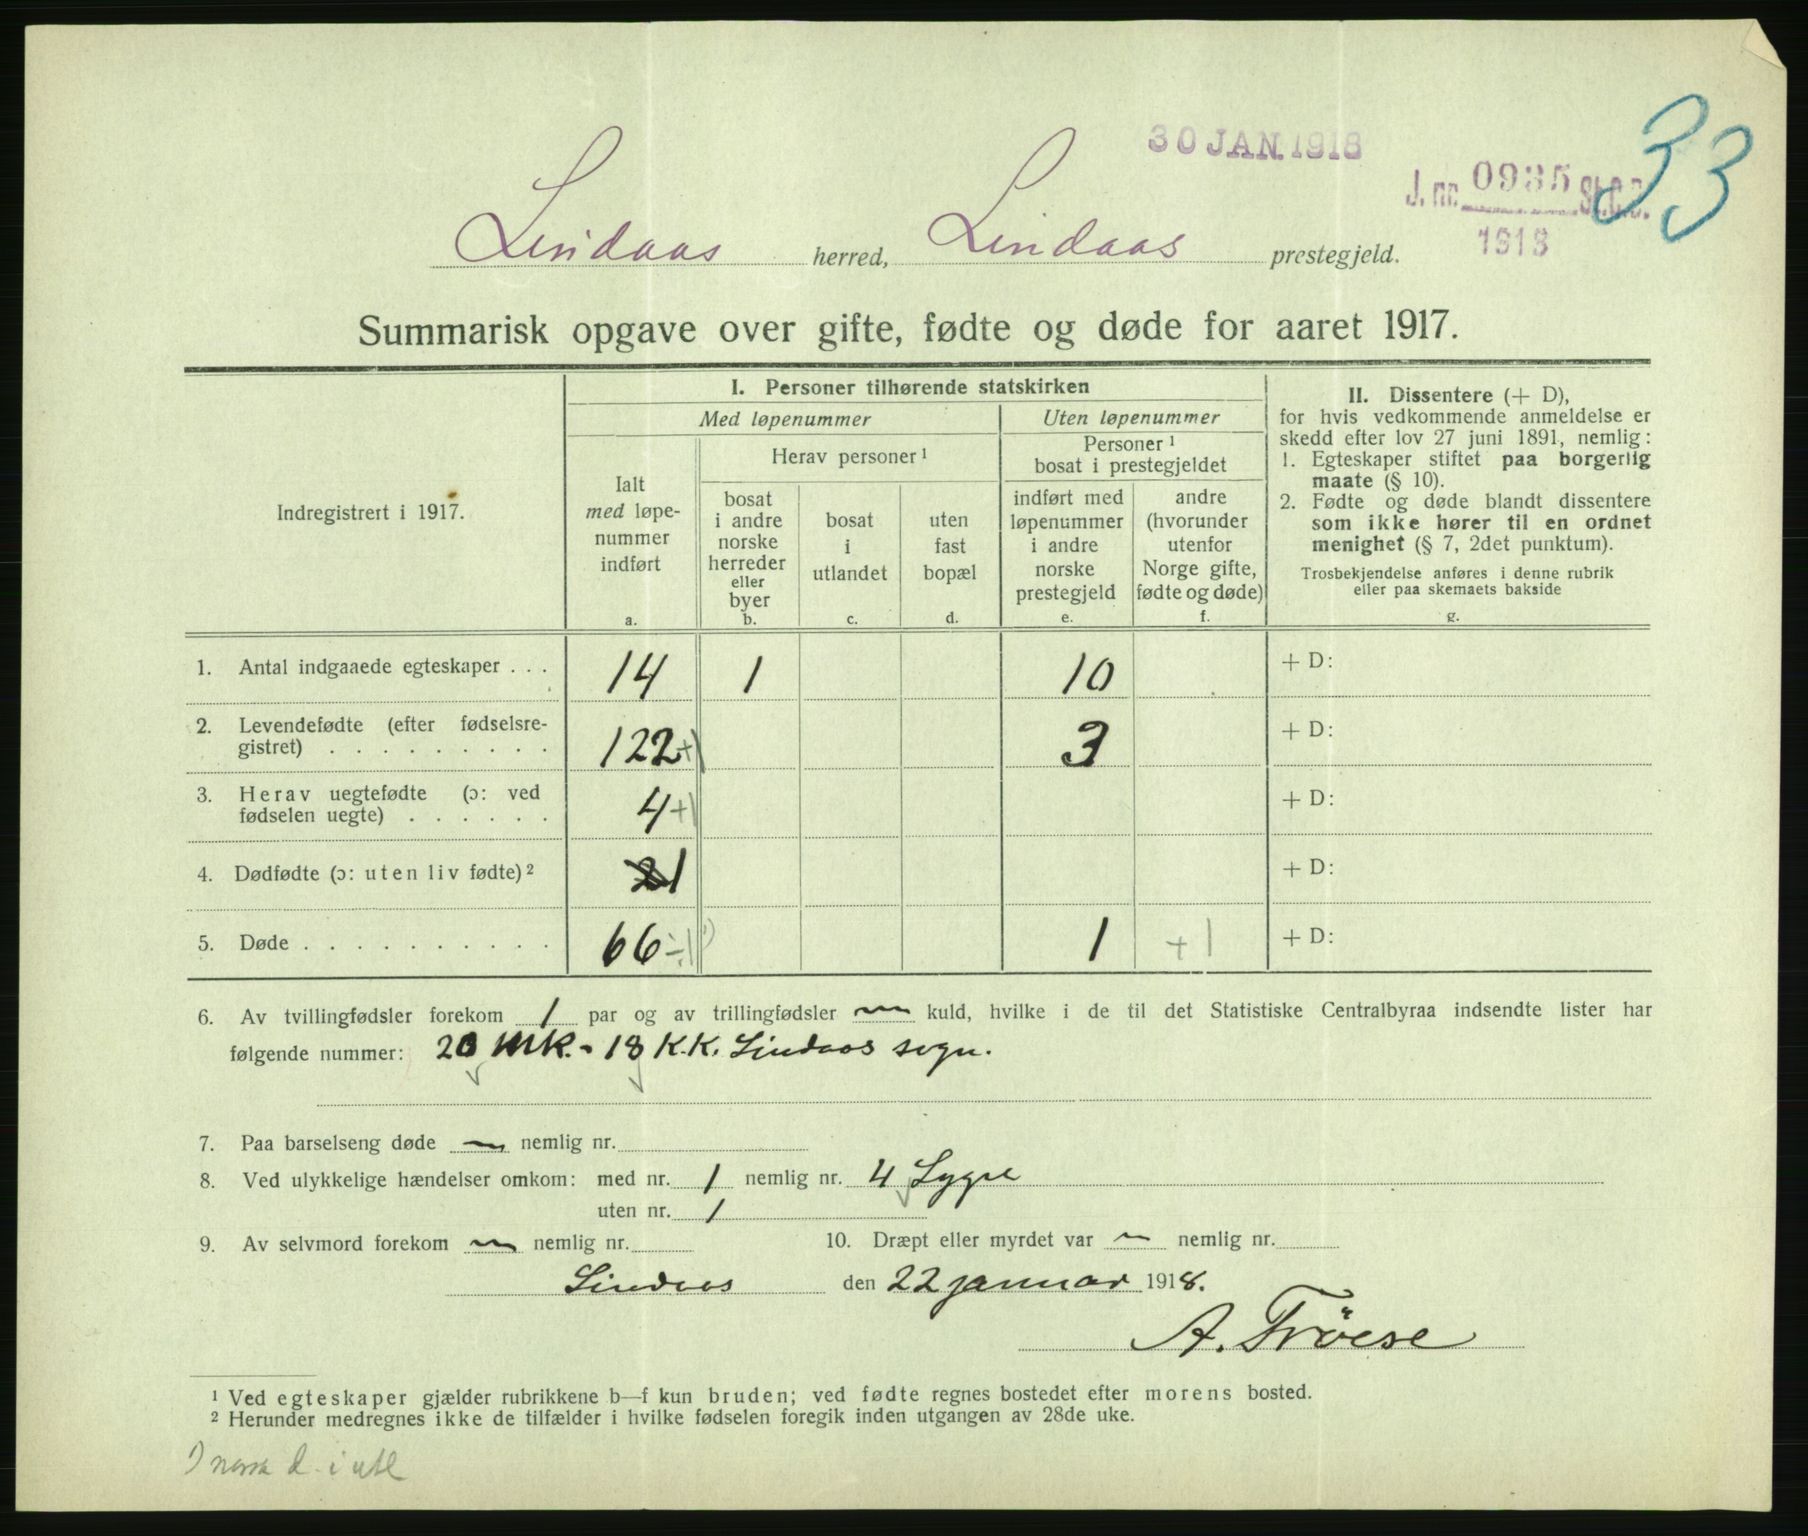 30 JAN. 1918
33
J. nr. 0935 St.C.B.
1918
Lindaas herred, Lindaas prestegjeld.
Summarisk opgave over gifte, fødte og døde for aaret 1917.
Indregistrert i 1917.
I. Personer tilhørende statskirken
Med løpenummer
Uten løpenummer
Ialt
med løpe-
nummer
indført
a.
Herav personer ¹
bosat
i andre
norske
herreder
eller
byer
b.
bosat
i
utlandet
c.
uten
fast
bopæl
d.
Personer ¹
bosat i prestegjeldet
indført med
løpenummer
i andre
norske
prestegjeld
e.
andre
(hvorunder
utenfor
Norge gifte,
fødte og døde)
f.
II. Dissentere (+ D),
for hvis vedkommende anmeldelse er
skedd efter lov 27 juni 1891, nemlig:
1. Egteskaper stiftet paa borgerlig
maate (§ 10).
2. Fødte og døde blandt dissentere
som ikke hører til en ordnet
menighet (§ 7, 2det punktum).
Trosbekjendelse anføres i denne rubrik
eller paa skemaets bakside
g.
1. Antal indgaaede egteskaper . . . 14 1 10 + D:
2. Levendefødte (efter fødselsre-
gistret) . . . . . . . . . 122+1 3 + D:
3. Herav uegtefødte (ɔ: ved
fødselen uegte) . . . . . . 4+1 + D:
4. Dødfødte (ɔ: uten liv fødte) ² 21 + D:
5. Døde . . . . . . . . . . 66÷1 ¹) 1 +1 + D:
6. Av tvillingfødsler forekom 1 par og av trillingfødsler — kuld, hvilke i de til det Statistiske Centralbyraa indsendte lister har
følgende nummer: 20 MK. - 18 K.K. Lindaas sogn.
7. Paa barselseng døde — nemlig nr.
8. Ved ulykkelige hændelser omkom: med nr. 1 nemlig nr. 4 Lygre
uten nr. 1
9. Av selvmord forekom — nemlig nr. 10. Dræpt eller myrdet var — nemlig nr.
Lindaas den 22 januar 1918.
A. Tröese
¹ Ved egteskaper gjælder rubrikkene b—f kun bruden; ved fødte regnes bostedet efter morens bosted.
² Herunder medregnes ikke de tilfælder i hvilke fødselen foregik inden utgangen av 28de uke.
¹) norsk d. i utl